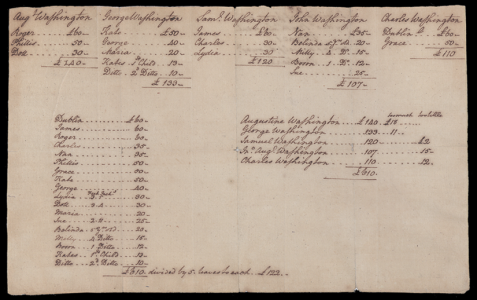 Augt Washington
Roger £60
Phillis 50
Bett 30
£140
George Washington
Kate £50
George 40
Maria 20
Kates 1st Child 10
Ditto 2d Ditto 10
£130
Saml Washington
James £60
Charles 30
Lydia 30
£120
John Washington
Nan £35
Belinda 20
Milly Do 15
Do 12
Sue 25
£107
Charles Washington
Dublin £60
Grace 50
£110
Dublin £60
James 60
Roger 60
Charles
Nan 35
Phillis 50
Grace 50
Kate 50
George 40
Lydia 30
Bett 30
Maria 20
Sue 25
Belinda 20
Milly Ditto 15
Ditto 12
Kates 1st Child 10
Ditto 2d Ditto 10
£610 divided by 5 leaves to each £122
Augustine Washington £140 £18
George Washington 133 11
Samuel Washington 120 £2
Jno Augt Washington 107 15
Charles Washington 110 12
£610